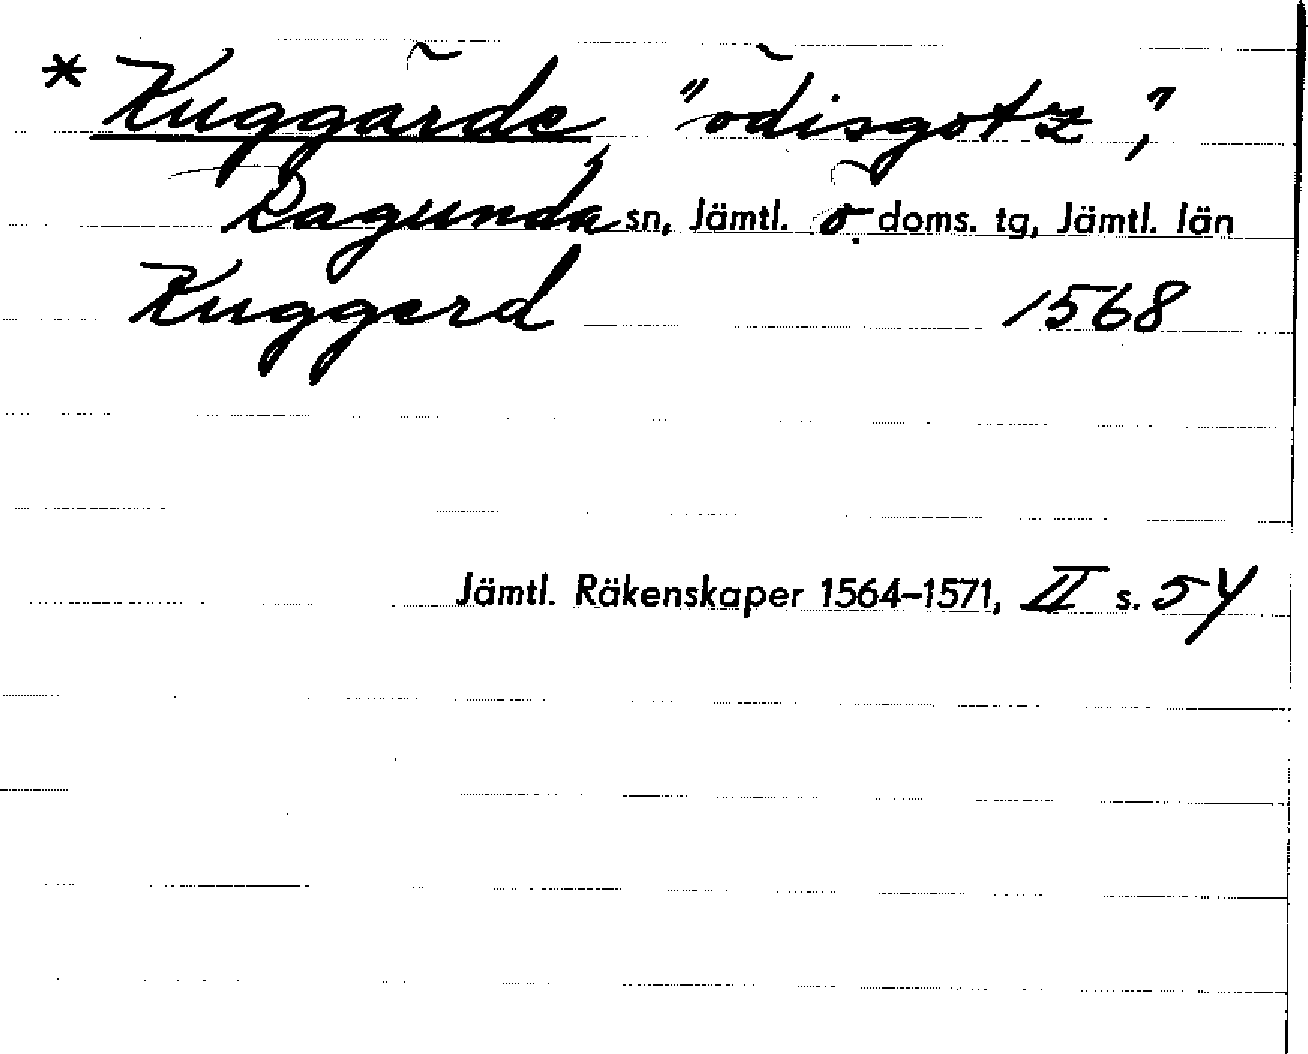 * Kuggärde "ödisgotz",
Ragunda sn, Jämtl. ö. doms. tg, Jämtl. län
Kuggerd 1568
Jämtl. Räkenskaper 1564–1571, II s. 54